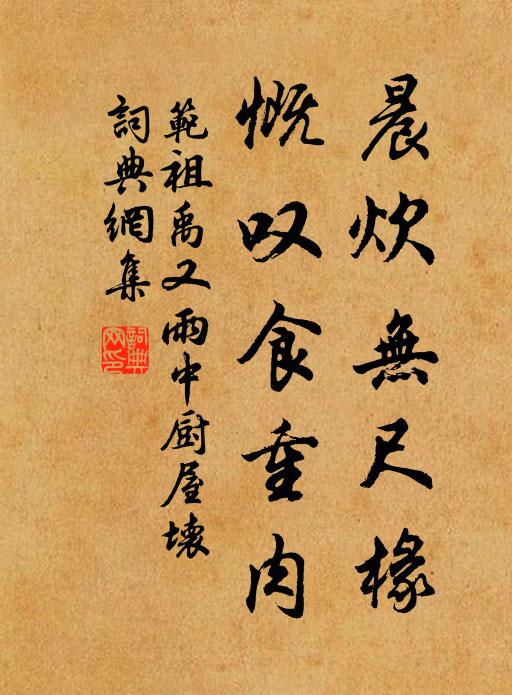 晨炊無尺椽
慨叹食重肉
範祖禹又雨中厨屋壊
詞典網集
詞典網印